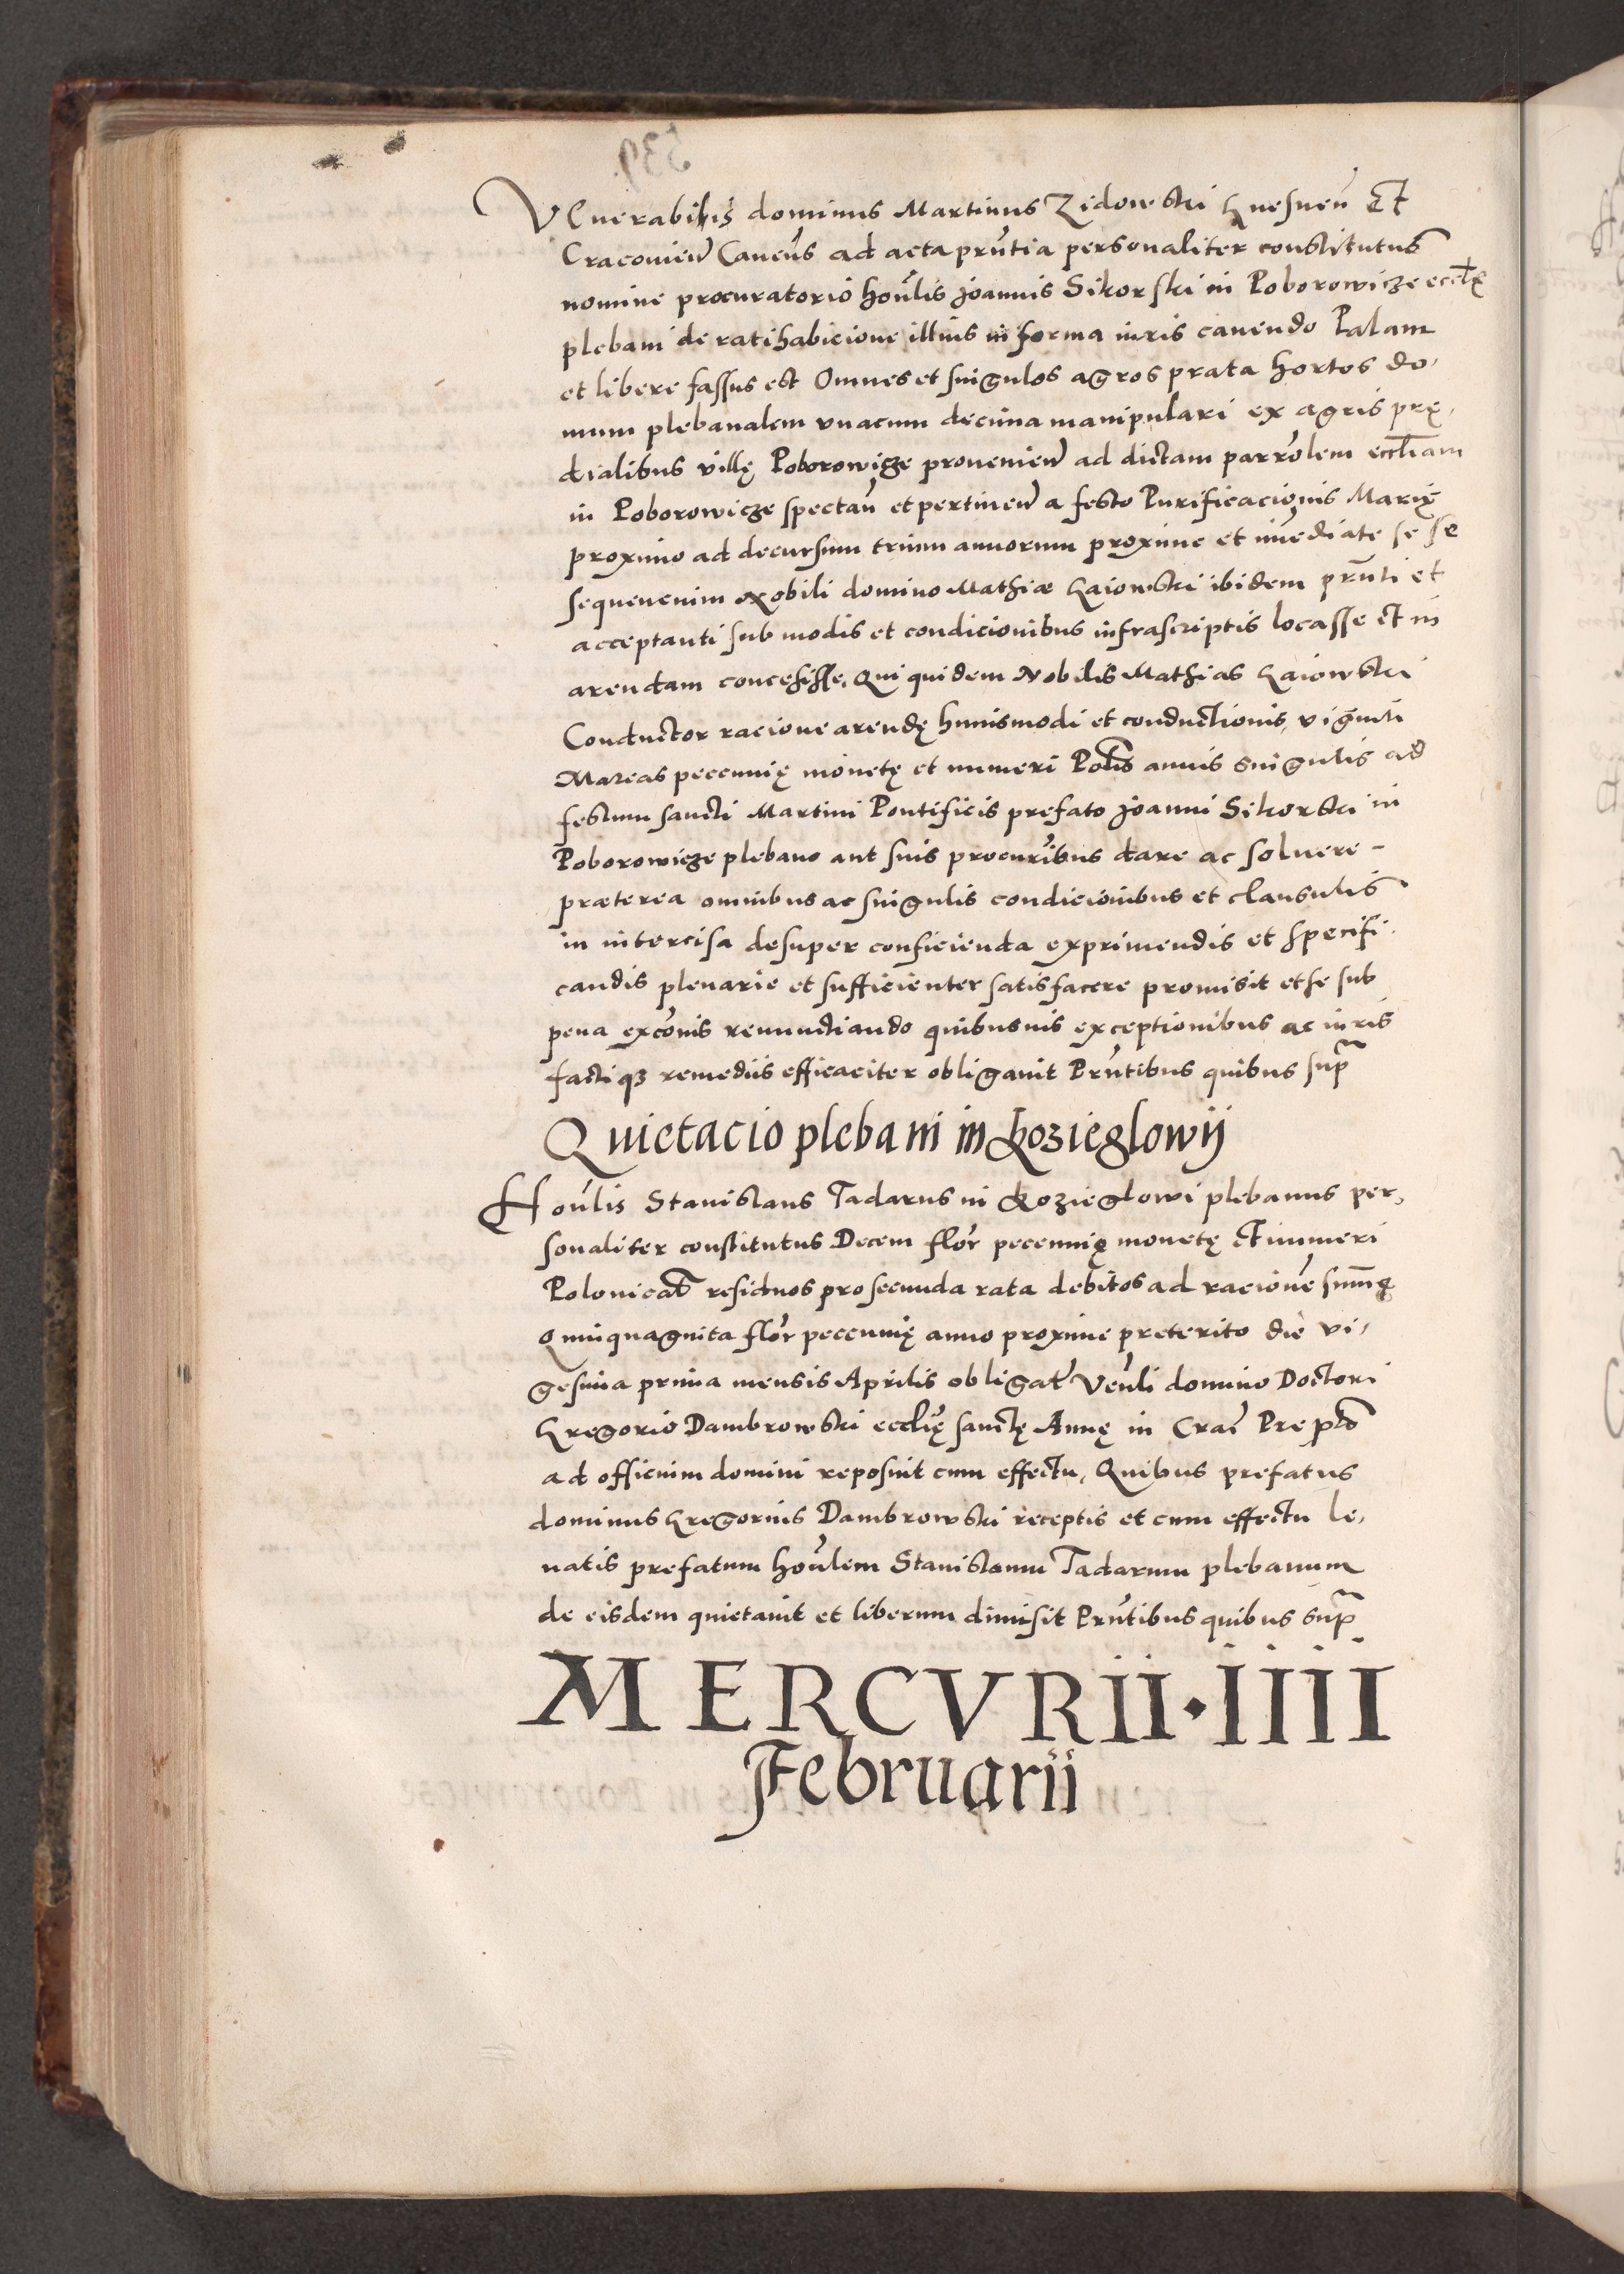 VEnerabilis dominus Martinus Zidowski Gnesnen̄ Et
Cracovien̄ Canon̄s ad acta pn̄tia personaliter constitutus
nomine procuratorio hon̄lis Joannis Sikorski in Poborowicze eccl̄ę
plebani de ratihabicione illius in forma iuris cauendo Palam
et libere fassus est Omnes et singulos agros prata hortos do,
mum plebanalem vnacum decima manipulari ex agris prę,
dialibus villę Poborowicze prouenien̄ ad dictam parro͞lem eccl̄iam
in Poborowicze spectan̄ et pertinen̄ a festo Purificacionis Marię
proximo ad decursum trium annorum proxime et īmediate se se
sequencium Nobili domino Mathiæ Gaiowski ibidem pn̄ti et
acceptanti sub modis et condicionibus infrascriptis locasse et in
arendam concesisse, Qui quidem Nobilis Mathias Gaiowski
Conductor racione arendę huiusmodi et conductionis, viginti
Marcas peccunię monetę et numeri Pol̄is annis singulis ad
festum sancti Martini Pontificis prefato Joanni Sikorski in
Poborowicze plebano aut suis procur̄ibus dare ac soluere -
præterea omnibus ac singulis condicionibus et clausulis
in intercisa desuper conficienda exprimendis et specifi,
candis plenarie et sufficienter satisfacere promisit et se sub
pena exco͞nis renunctiando quibusuis exceptionibus ac iuris
facti qȝ remediis efficaciter obligauit Pn̄tibus quibus sup̄
Quietacio plebani in Kozieglowÿ
Hon̄lis Stanislaus Tadarus in Kozieglowi plebanus per,
sonaliter constitutus Decem flor̄ peccunię monetę Et numeri
Polonicał residuos pro secunda rata debitos ad racionē sum̄ę
Quinquaginta flor̄ peccunię anno proxime preterito die vi,
gesima prima mensis Aprilis obligat̄ Ven̄li domino Doctori
Gregorio Dambrowski eccl̄ię sanctę Annę in Crac̄ Prepto
ad officium domini reposuit cum effectu, Quibus prefatus
dominus Gregorius Dambrowski receptis et cum effectu le,
uatis prefatum hon̄lem Stanislaum Tadarum plebanum
de eisdem quietauit et liberum dimisit Pn̄tibus quibus sup̄
MERCVRII·IIII
Februarii